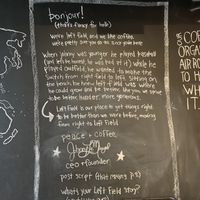 bonjour!
(that's fancy for hello)
we're left field, and we like coffee.
we're pretty sure you do too since you're here.
when johnny was younger he played baseball
(and let's be honest, he was bad at it) while he
played outfield, he wanted to make the
switch from right field to left. sitting on
the bench, he knew left field was where
he could grow and be better. like you, we strive
to be better: kinder, more generous.
Left Field is our place to get things right
to be better than we were before, making
from right to Left Field
peace + coffee,
ceo + founder
post script (that means p.s.)
what's your Left Field story?
US CO
ORGA
AIR RO
TO H
WH
IT